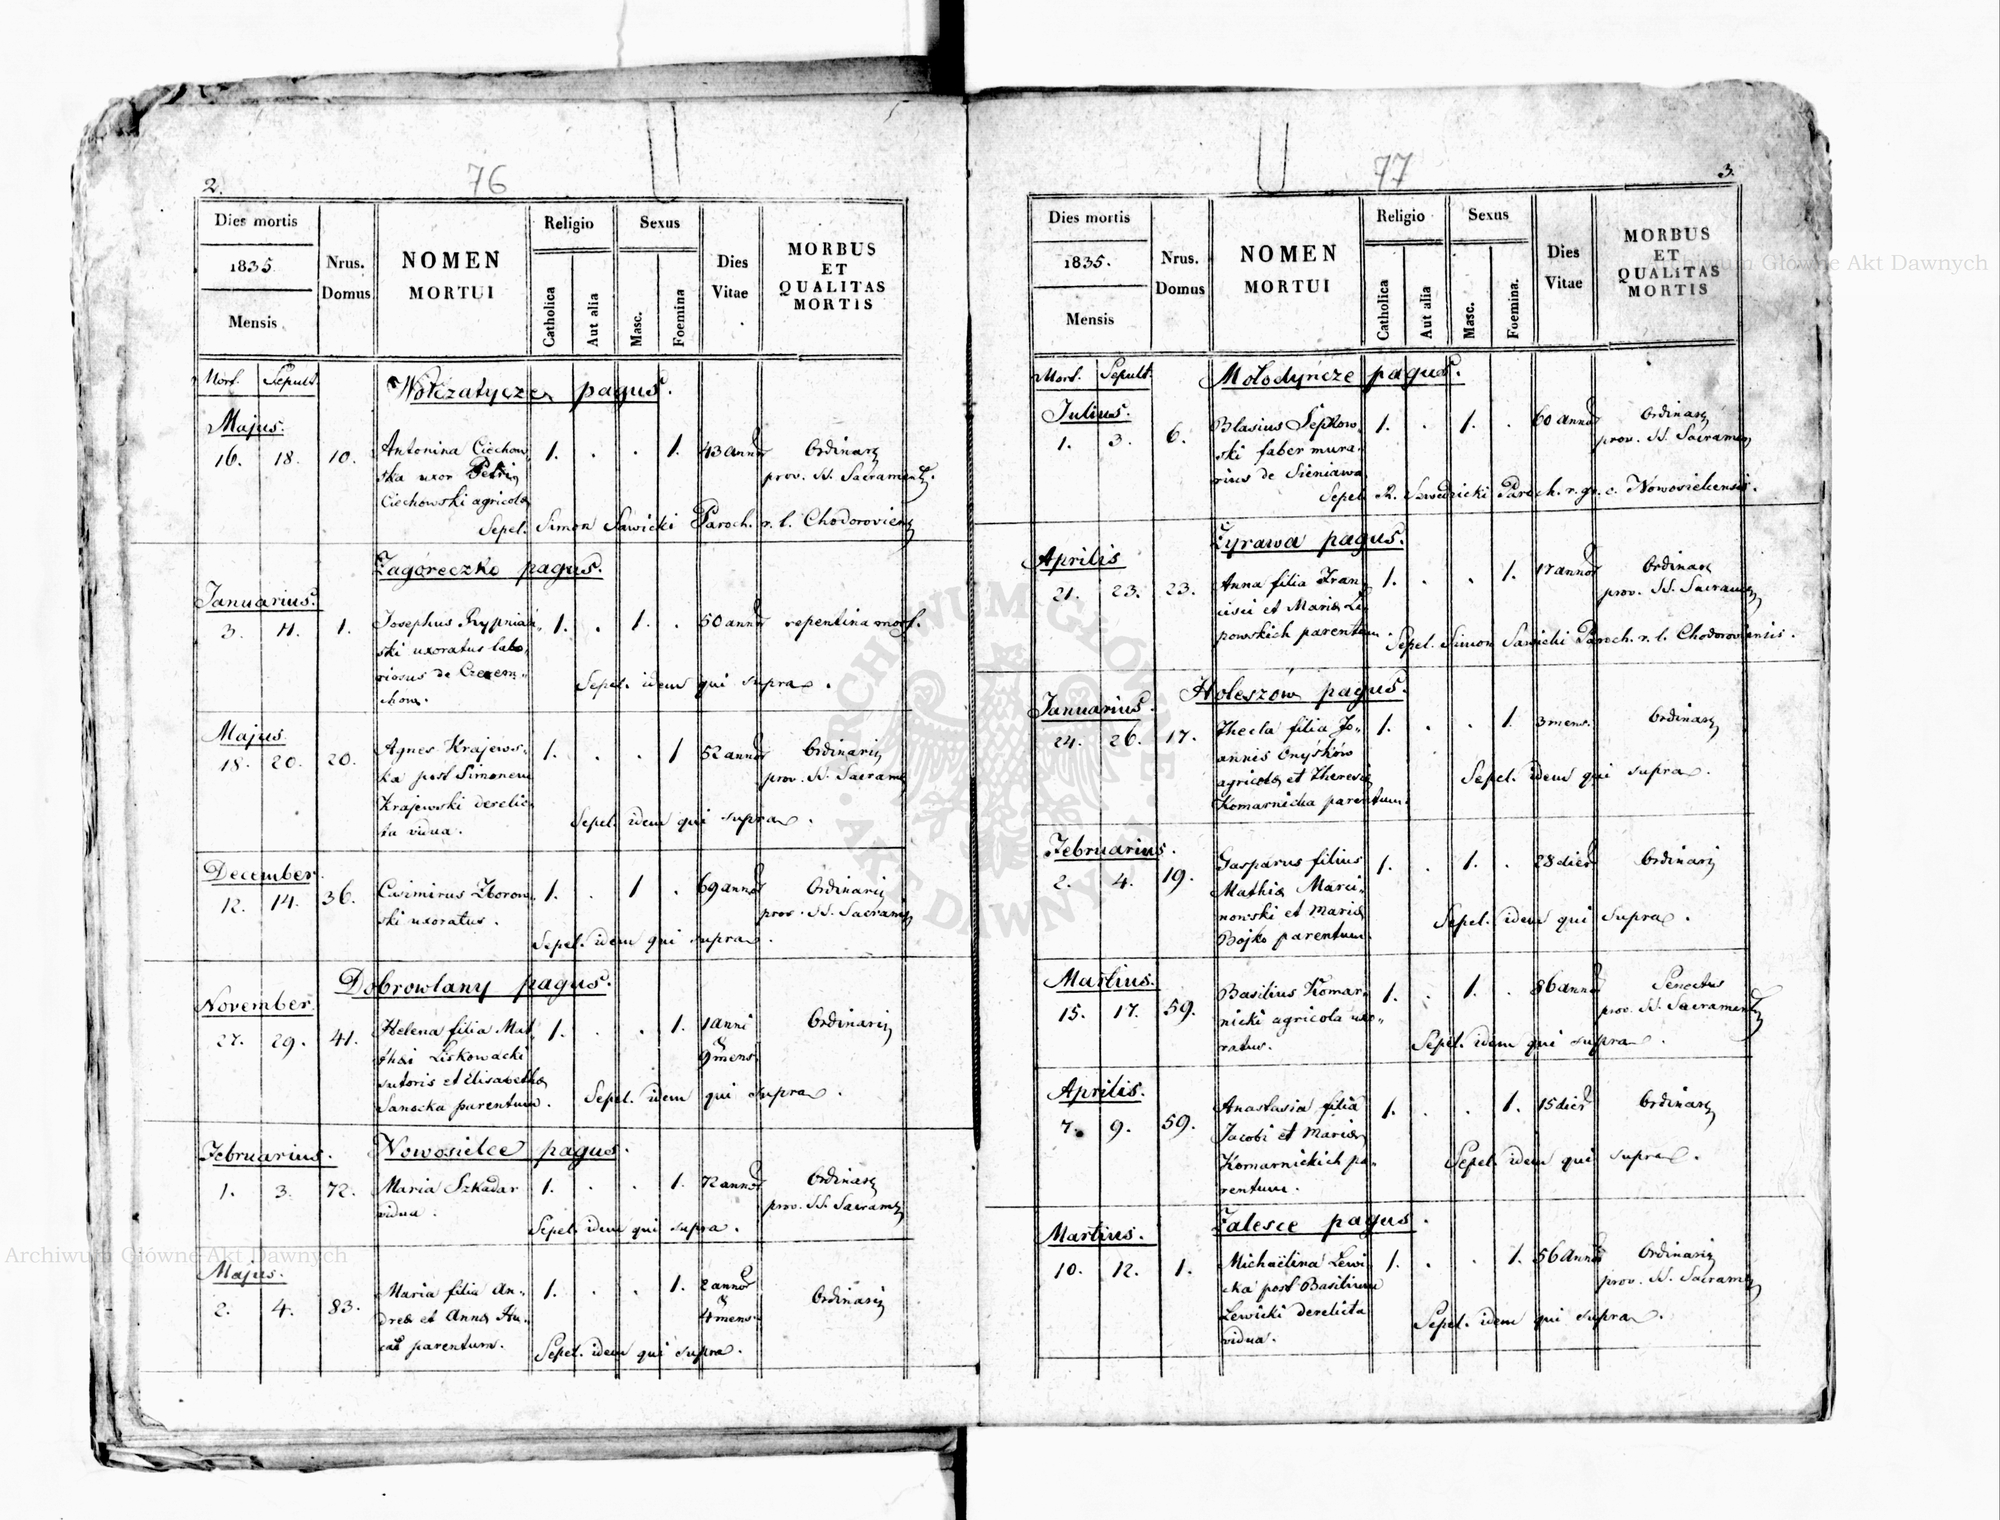 2.
76
Dies mortis
1835.
Mensis
Nrus.
Domus
NOMEN
MORTUI
Religio
Catholica
Aut alia
Sexus
Masc.
Foemina
Dies
Vitae
MORBUS
ET
QUALITAS
MORTIS
Mort. Sepult.
Wołczatycze pagus.
Majus.
16. 18. 10. Antonina Ciechow- 1. . . 1. 43 annor Ordinarii
ska uxor Petri prov. SS. Sacrament.
Ciechowski agricolæ
Sepel. Simon Sawicki Paroch. r. l. Chodorovien
Zagóreczko pagus.
Januarius.
3. 4. 1. Josephus Rypniań- 1. . 1. . 50 annor repentina mort.
ski uxoratus labo-
riosus de Czerem-
chow. Sepel. idem qui supra.
Majus.
18. 20. 20. Agnes Krajews- 1. . . 1 52 annor Ordinarii
ka post Simonem prov. SS. Sacram
Krajewski derelic-
ta vidua. Sepel. idem qui supra.
December.
12. 14. 36. Casimirus Zborow- 1. . 1 . 69 annor Ordinarii
ski uxoratus. prov. SS. Sacram
Sepel. idem qui supra.
Dobrowlany pagus.
November.
27. 29. 41. Helena filia Mat- 1. . . 1. 1 anni Ordinarii
thæi Liskowacki & 9 mens.
sutoris et Elisabethæ
Sanocka parentum. Sepel. idem qui supra.
Nowosielce pagus.
Februarius.
1. 3. 72. Maria Szkadar 1. . . 1. 72 annor Ordinarii
vidua. prov. SS. Sacram
Sepel. idem qui supra.
Majus.
2. 4. 83. Maria filia An- 1. . . 1. 2 annor Ordinarii
dreæ et Annæ Hu- & 4 mens.
cał parentum. Sepel. idem qui supra.
77
3.
Dies mortis
1835.
Mensis
Nrus.
Domus
NOMEN
MORTUI
Religio
Catholica
Aut alia
Sexus
Masc.
Foemina.
Dies
Vitae
MORBUS
ET
QUALITAS
MORTIS
Mort. Sepult.
Mołodyńcze pagus.
Julius.
1. 3. 6. Blasius Sępkow- 1. . 1. . 60 annor Ordinarii
ski faber mura- prov. SS. Sacramen
rius de Sieniawa
Sepel. Paroch. r. gr. c. Nowosielcensis.
Żyrawa pagus.
Aprilis
21. 23. 23. Anna filia Fran- 1. . . 1. 17 annor Ordinarii
cisci et Mariæ Li- prov. SS. Sacram
powskich parentum. Sepel. Simon Sawicki Paroch. r. l. Chodoroviensis.
Holeszów pagus.
Januarius.
24. 26. 17. Thecla filia Jo- 1. . . 1. 3 mens. Ordinarii
annis Onyśków
agricolæ et Theresiæ Sepel. idem qui supra.
Komarnicka parentum.
Februarius.
2. 4. 19. Gasparus filius 1. . 1. . 28 dier Ordinarii
Mathiæ Marci-
nowski et Mariæ Sepel. idem qui supra.
Bojko parentum.
Martius.
15. 17. 59. Basilius Komar- 1. . 1. . 86 annor Senectus
nicki agricola uxo- prov. SS. Sacrament
ratus. Sepel. idem qui supra.
Aprilis.
7. 9. 59. Anastasia filia 1. . . 1. 15 dier Ordinarii
Jacobi et Mariæ
Komarnickich pa- Sepel. idem qui supra.
rentum.
Zalesce pagus.
Martius.
10. 12. 1. Michaëlina Lewi- 1. . . 1. 56 annor Ordinarii
cka post Basilium prov. SS. Sacram
Lewicki derelicta Sepel. idem qui supra.
vidua.
Archiwum Główne Akt Dawnych
Archiwum Główne Akt Dawnych
ARCHIWUM GŁÓWNE
AKT DAWNYCH